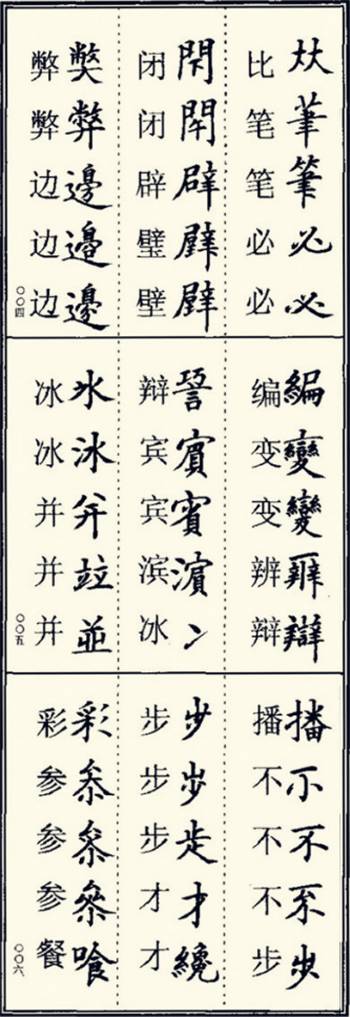 比夶
笔茟
笔筆
必必
必必
闭閇
闭閉
辟辟
璧璧
壁壁
弊獘
弊弊
边邊
边邉
边邊
〇〇四
编編
变變
变變
辨辨
辩辯
辩
宾賔
宾賓
滨濵
冰冫
冰氷
冰冰
并并
并竝
并並
〇〇五
播播
不
不不
不
步步
步步
步步
步
才才
才纔
彩彩
参叅
参叅
参參
餐飡
〇〇六